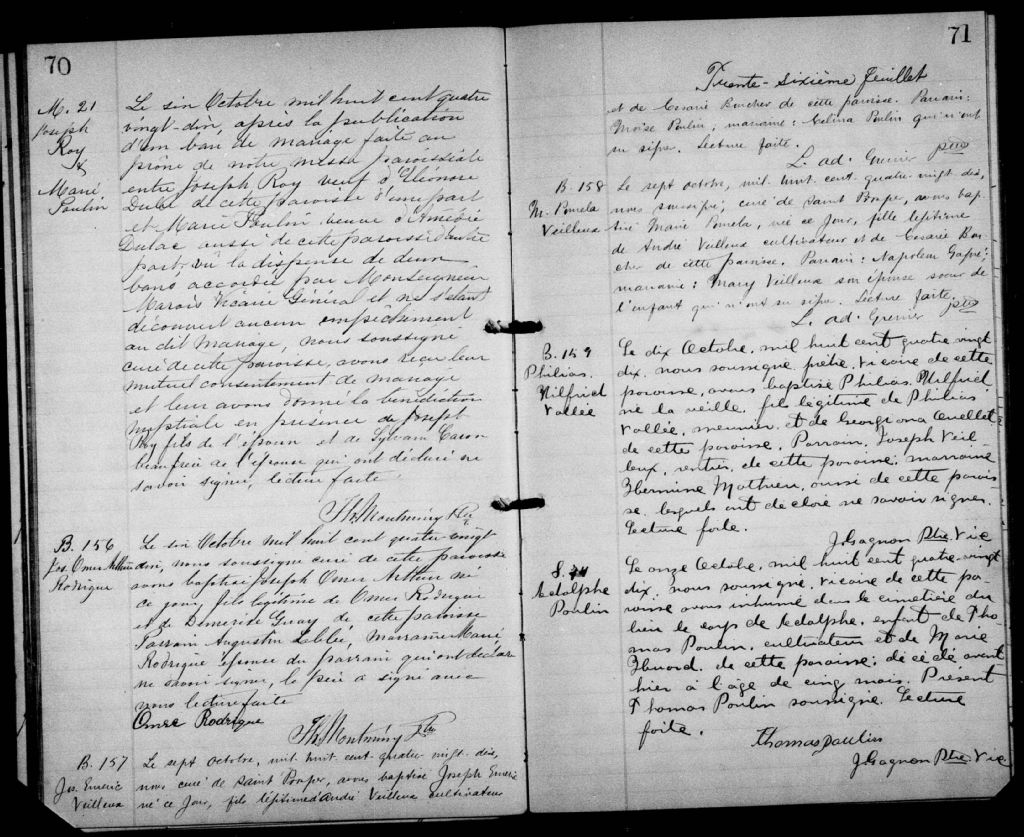 70
M. 21
Joseph
Roy
&
Marie
Poulin
Le six Octobre mil huit cent quatre
vingt-dix, après la publication
d'un ban de mariage faite au
prône de notre messe paroissiale
entre Joseph Roy veuf d'Eléonore
Dulac de cette paroisse d'une part
et Marie Poulin veuve d'
Dulac aussi de cette paroisse d'autre
part, vu la dispense de deux
bans accordée par Monseigneur
Marois Vicaire Général et ne s'étant
découvert aucun empêchement
au dit mariage, nous soussigné
curé de cette paroisse, avons reçu leur
mutuel consentement de mariage
et leur avons donné la bénédiction
nuptiale en présence de Joseph
Roy fils de l'époux et de Sylvain Caron
beaufrère de l'épouse qui ont déclaré ne
savoir signer, lecture faite.
Th. Montminy Ptre
B. 156
Jos. Omer Arthur
Rodrigue
Le six Octobre mil huit cent quatre vingt
dix, nous soussigné curé de cette paroisse
avons baptisé Joseph Omer Arthur né
ce jour, fils légitime de Omer Rodrigue
et de Démerise Guay de cette paroisse
Parrain Augustin Labbé, marraine Marie
Rodrigue épouse du parrain qui ont déclaré
ne savoir signer, le père a signé avec
nous lecture faite
Omer Rodrigue
Th. Montminy Ptre
B. 157
Jos. Emeric
Veilleux
Le sept octobre, mil huit cent quatre vingt-dix,
nous curé de Saint Prosper, avons baptisé Joseph Emeric
né ce jour, fils légitime d'André Veilleux cultivateur
71
Trente-sixième feuillet
et de Césarie Boucher de cette paroisse. Parrain:
Moïse Poulin; marraine: Mélina Poulin qui n'ont
su signer. Lecture faite.
L. ad. Grenier ptre
B. 158
M. Pomela
Veilleux
Le sept octobre, mil huit cent quatre-vingt dix,
nous soussigné, curé de Saint Prosper, avons bap-
tisé Marie Pomela, née ce jour, fille légitime
de André Veilleux cultivateur et de Césarie Bou-
cher de cette paroisse. Parrain: Napoléon Gagné;
marraine: Mary Veilleux son épouse soeur de
l'enfant qui n'ont su signer. Lecture faite.
L. ad. Grenier ptre
B. 159
Philias
Wilfried
Vallée
Le dix Octobre, mil huit cent quatre vingt
dix, nous soussigné prêtre, vicaire de cette
paroisse, avons baptisé Philias, Wilfried,
né la veille, fils légitime de Philias
Vallée, meunier, et de Georgiana Ouellet
de cette paroisse. Parrain, Joseph Veil-
leux, rentier, de cette paroisse; marraine
Hermine Mathieu, aussi de cette parois-
se, lesquels ont déclaré ne savoir signer.
Lecture faite.
J. Gagnon Ptre. Vic
S.
Adolphe
Poulin
Le onze Octobre, mil huit cent quatre-vingt
dix, nous soussigné, vicaire de cette pa-
roisse avons inhumé dans le cimetière du
lieu le corps de Adolphe, enfant de Tho-
mas Poulin, cultivateur et de Marie
de cette paroisse; décédé avant
hier à l'âge de cinq mois. Présent
Thomas Poulin soussigné. Lecture
faite.
Thomas Paulin
J. Gagnon Ptre. Vic